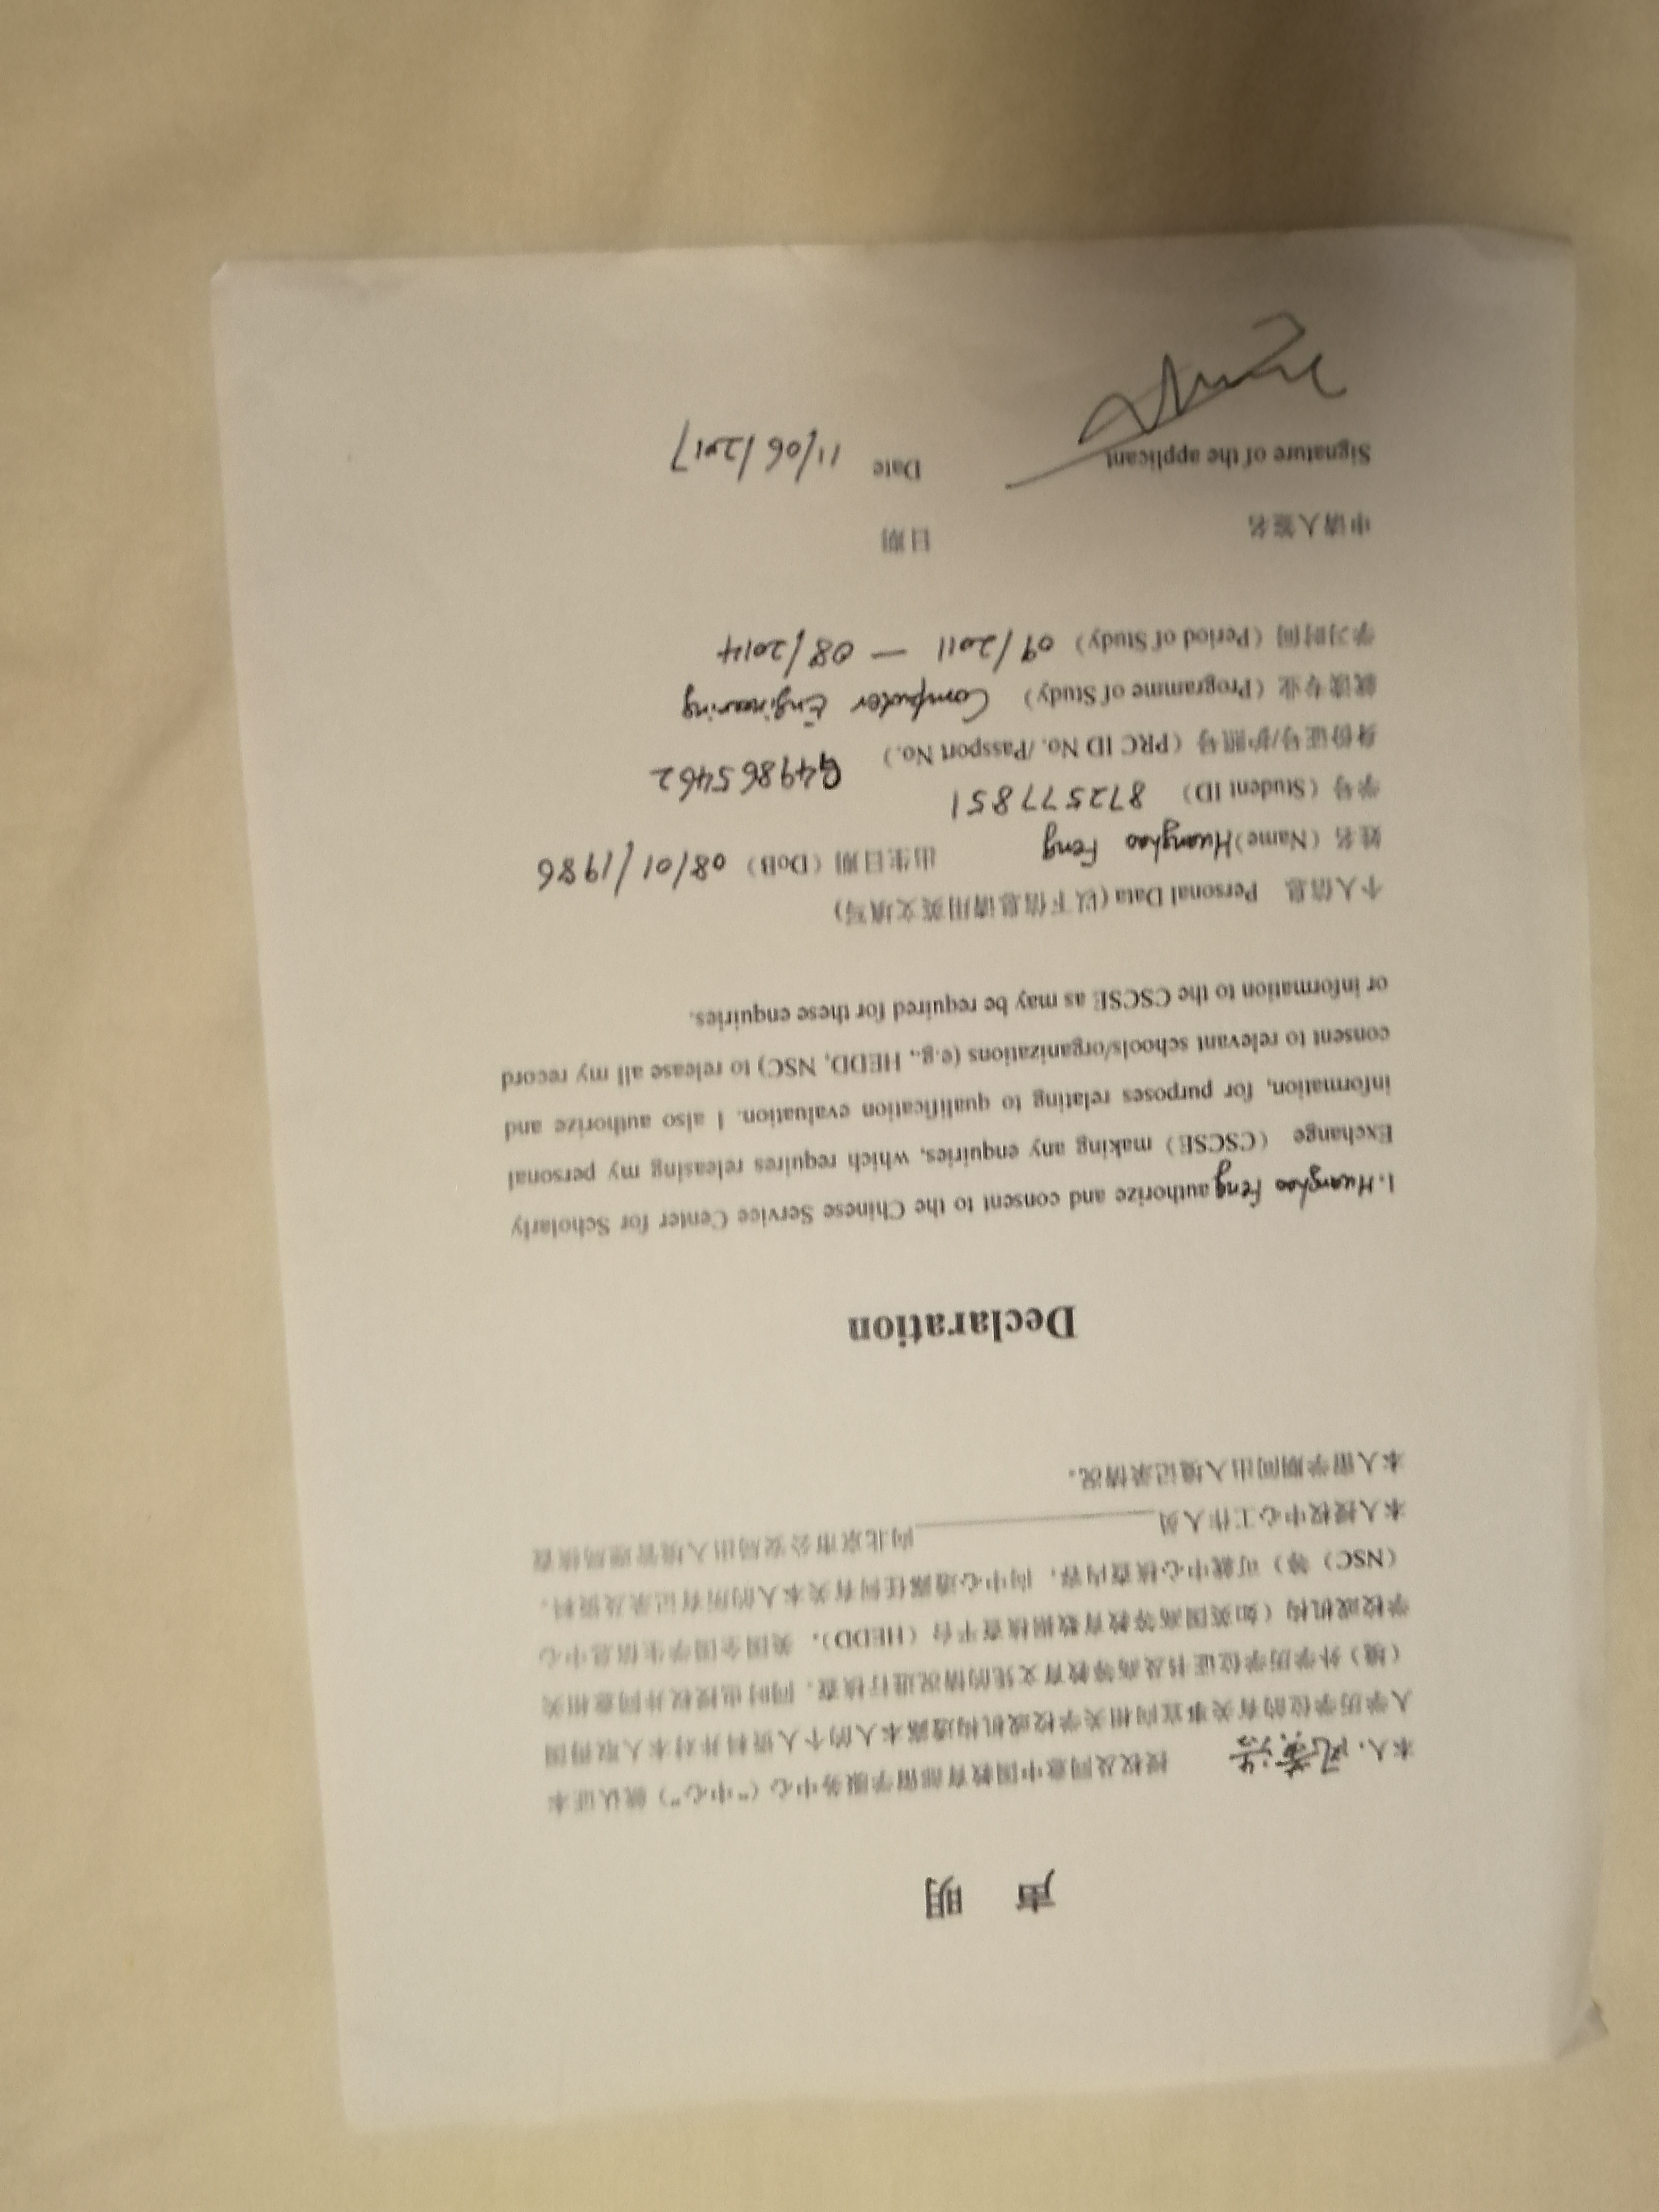 声 明
本人，风黄浩 授权及同意中国教育部留学服务中心（“中心”）就认证本
人学历学位的有关事宜向相关学校或机构透露本人的个人资料并对本人取得国
（境）外学历学位证书及高等教育文凭的情况进行核查。同时也授权并同意相关
学校或机构（如英国高等教育数据核查平台（HEDD），美国全国学生信息中心
（NSC）等）可就中心核查内容，向中心透露任何有关本人的所有记录及资料。
本人授权中心工作人员____________向北京市公安局出入境管理局核查
本人留学期间出入境记录情况。
Declaration
I, Huanghao Feng authorize and consent to the Chinese Service Center for Scholarly
Exchange （CSCSE）making any enquiries, which requires releasing my personal
information, for purposes relating to qualification evaluation. I also authorize and
consent to relevant schools/organizations (e.g., HEDD, NSC) to release all my record
or information to the CSCSE as may be required for these enquiries.
个人信息 Personal Data (以下信息请用英文填写)
姓名（Name）Huanghao Feng 出生日期（DoB）08/01/1986
学号（Student ID） 872577851
身份证号/护照号（PRC ID No. /Passport No.） G49865462
就读专业（Programme of Study） Computer Engineering
学习时间（Period of Study）09/2011 — 08/2014
申请人签名 日期
Signature of the applicant Date 11/06/2017